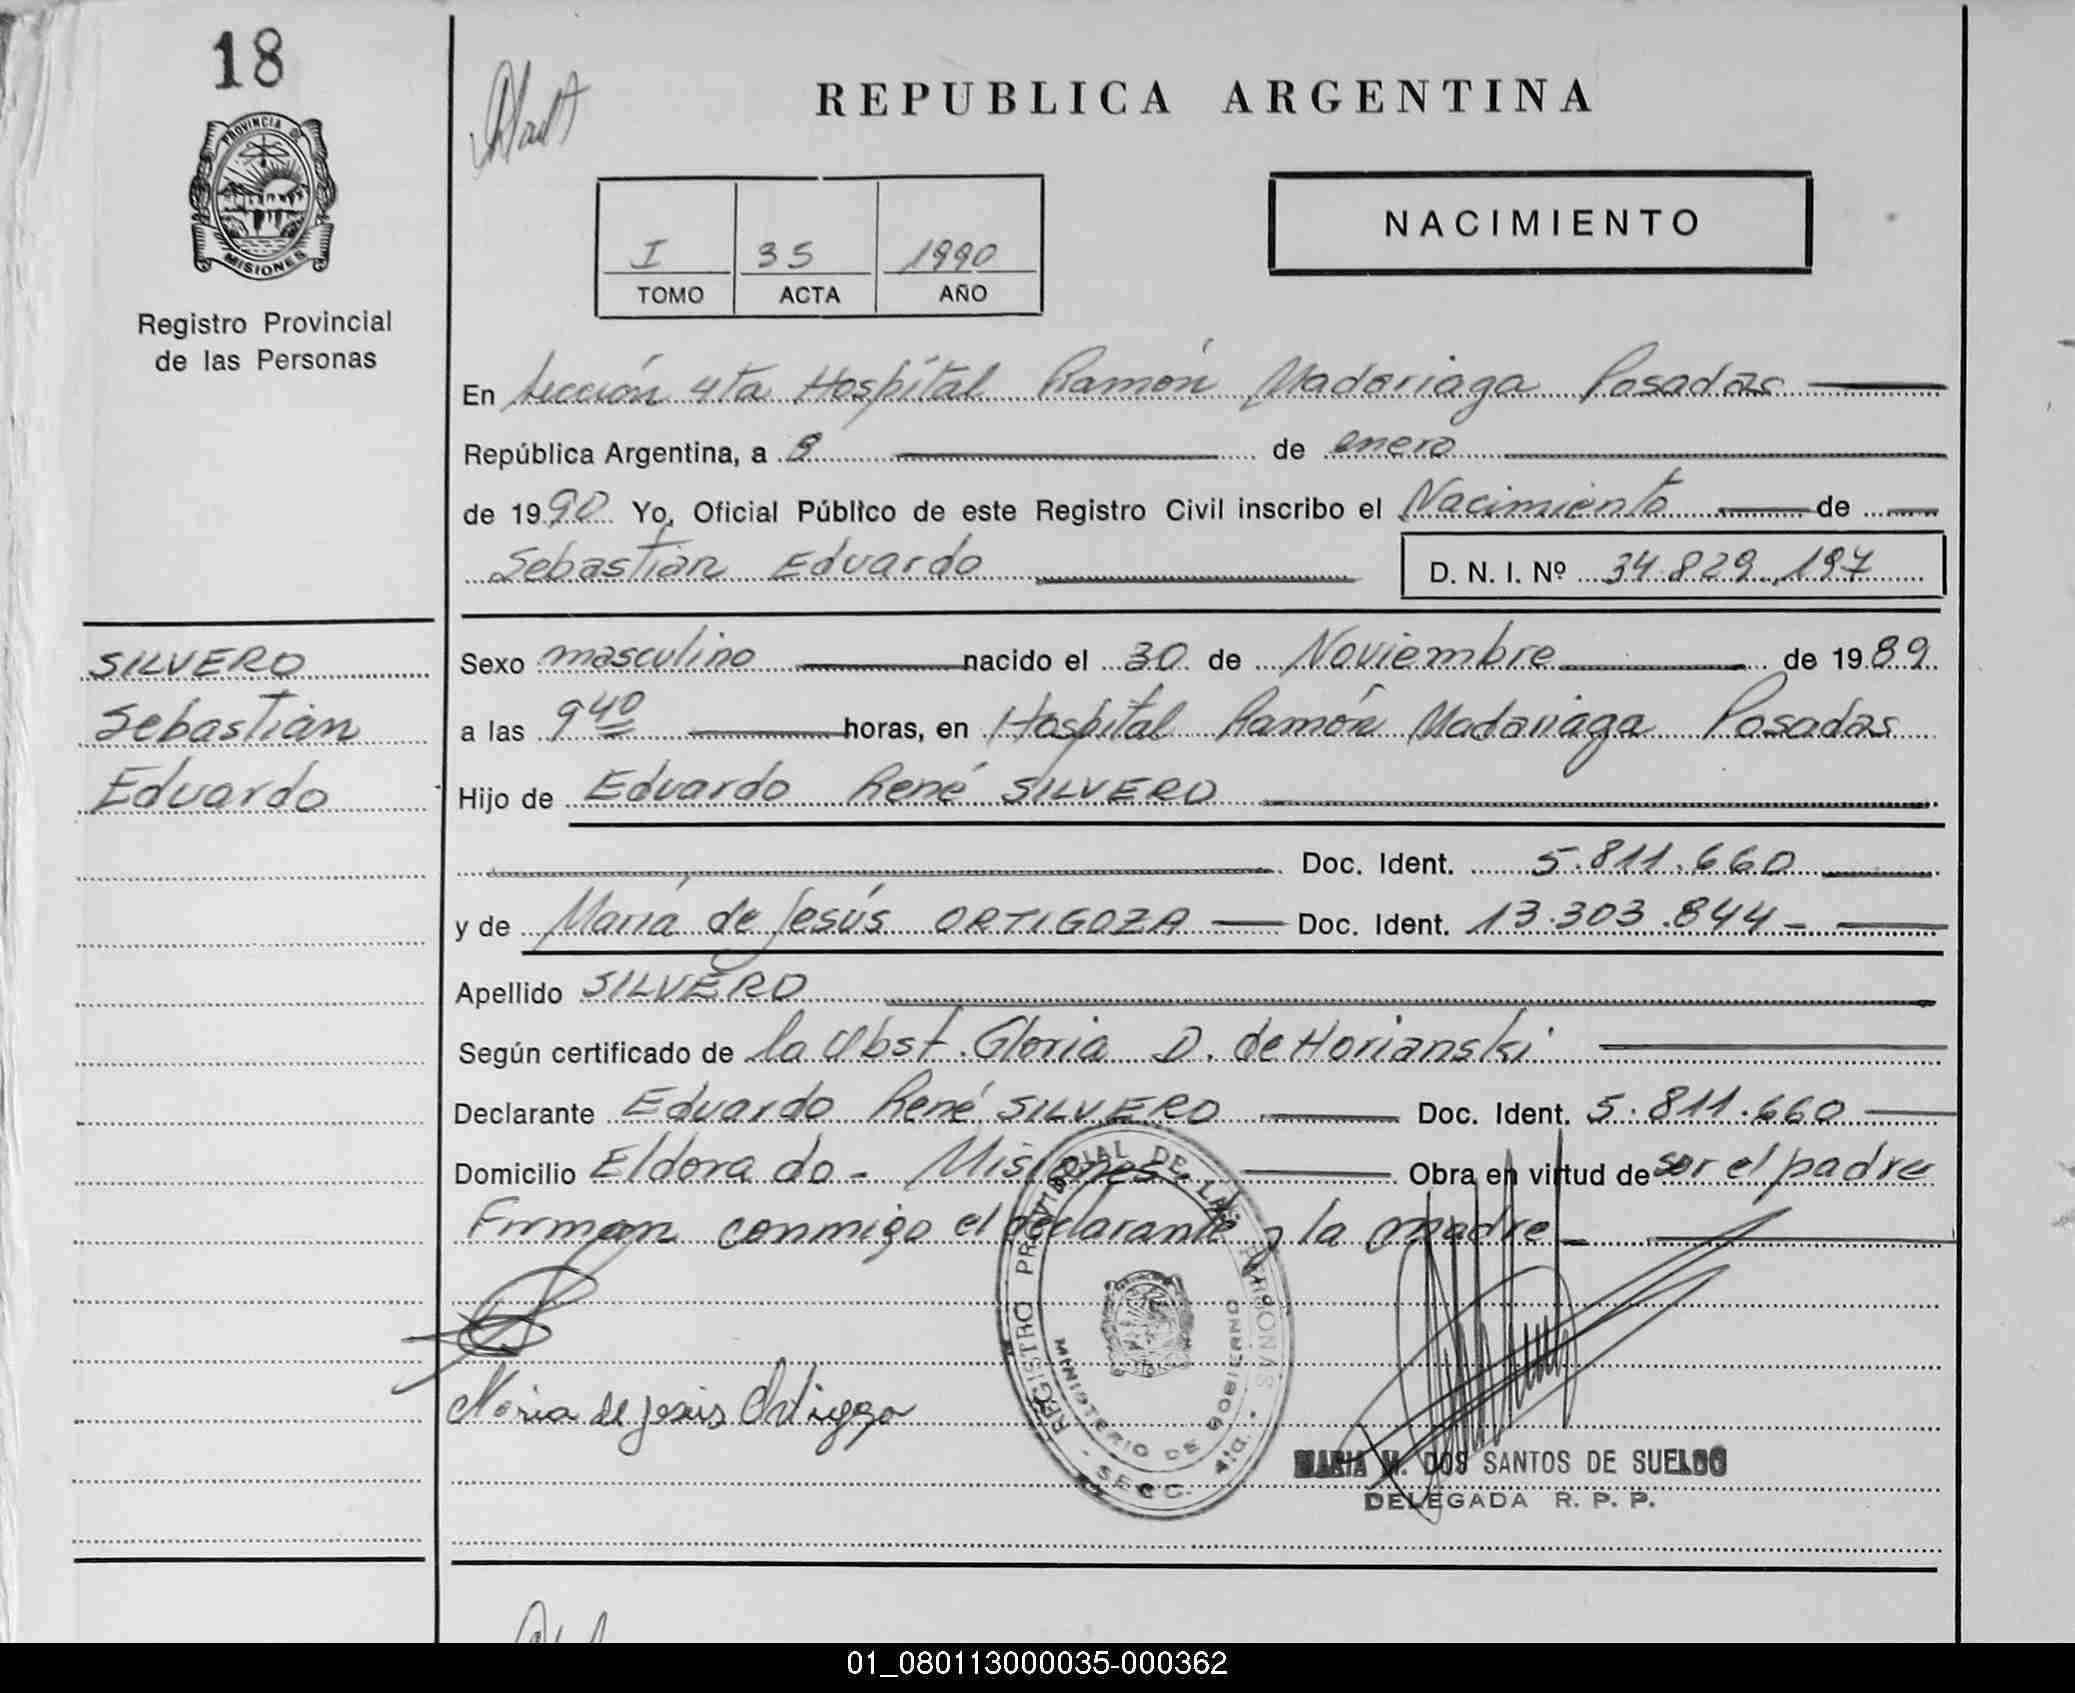 18
PROVINCIA DE
MISIONES
Registro Provincial
de las Personas
REPUBLICA ARGENTINA
I 35 1990
TOMO ACTA AÑO
NACIMIENTO
En Sección 4ta Hospital Ramón Madariaga Posadas
República Argentina, a 8 de enero
de 1990 Yo, Oficial Público de este Registro Civil inscribo el Nacimiento de
Sebastián Eduardo D. N. I. Nº 34.829.197
SILVERO
Sebastián
Eduardo
Sexo masculino nacido el 30 de Noviembre de 1989
a las 9 40 horas, en Hospital Ramón Madariaga Posadas
Hijo de Eduardo René SILVERO
Doc. Ident. 5.811.660
y de María de Jesús ORTIGOZA Doc. Ident. 13.303.844
Apellido SILVERO
Según certificado de la Obst. Gloria D. de Horianski
Declarante Eduardo René SILVERO Doc. Ident. 5.811.660
Domicilio Eldorado - Misiones Obra en virtud de ser el padre
Firman conmigo el declarante y la madre
Maria de Jesús Ortigoza
REGISTRO PROVINCIAL DE LAS PERSONAS
MINISTERIO DE GOBIERNO
- SECC. 4ta. -
MARIA M. DOS SANTOS DE SUELDO
DELEGADA R. P. P.
01_080113000035-000362